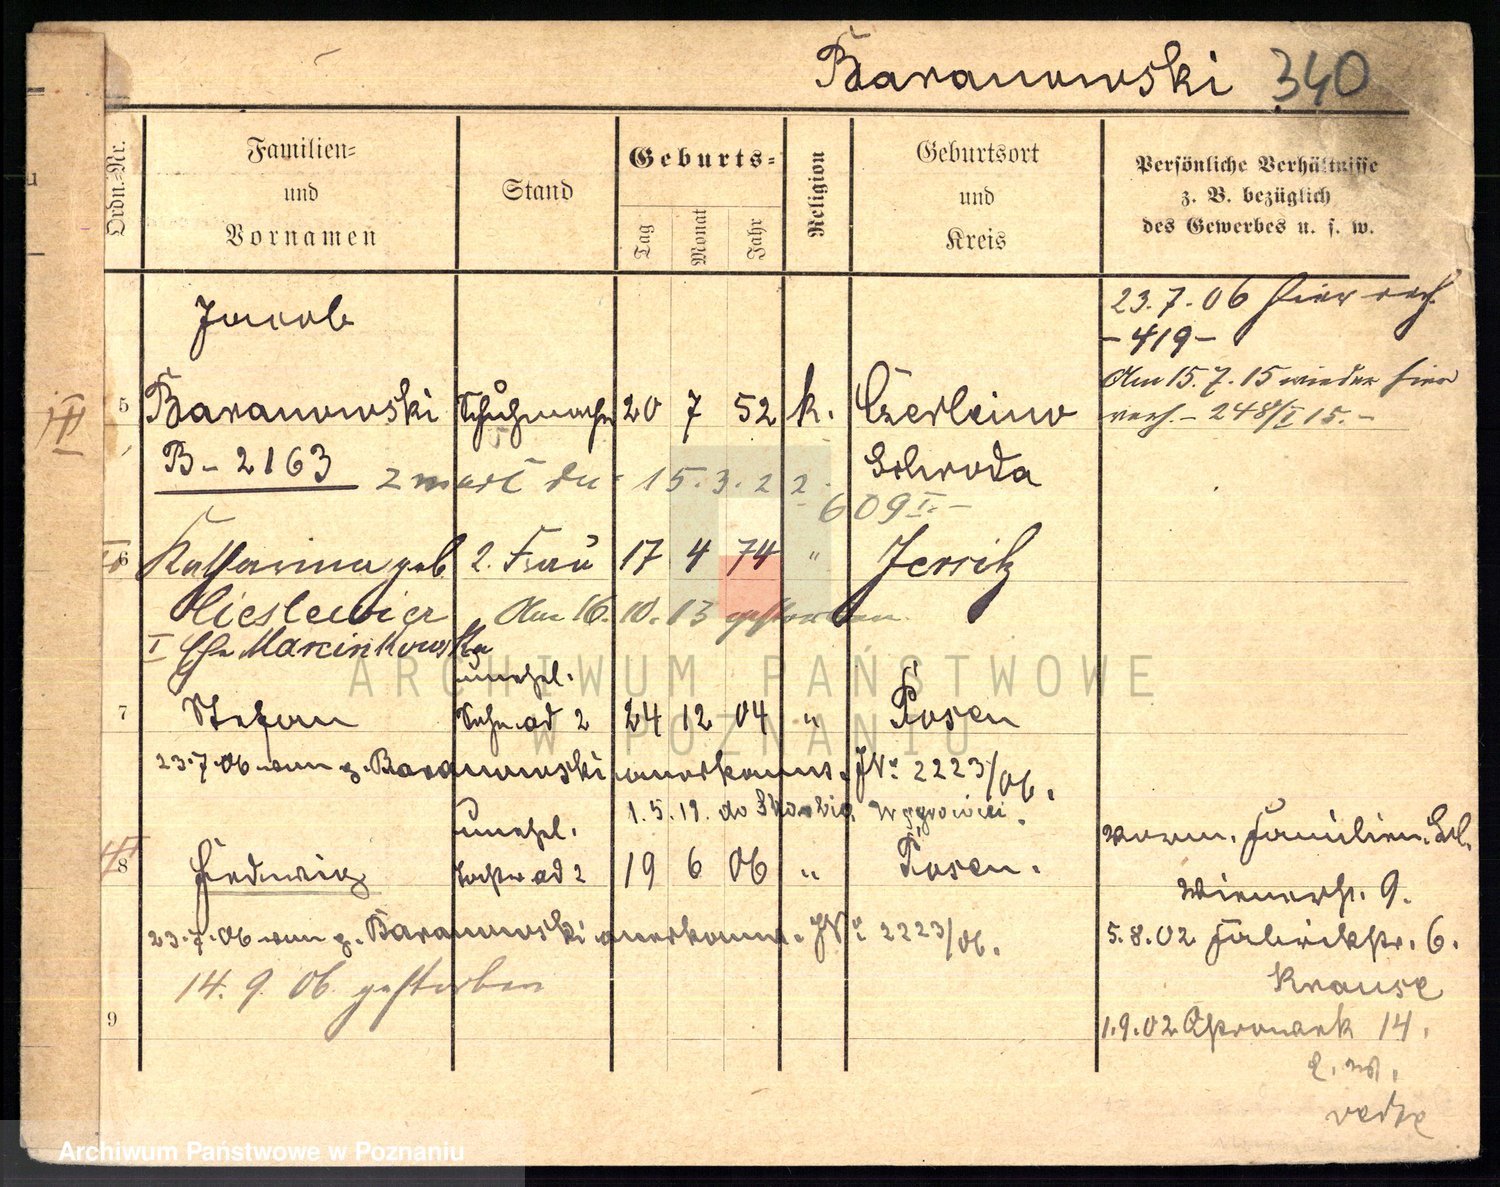 Baranowski 340
Ordn.-Nr.
Familien-
und
Vornamen
Stand
Geburts-
Tag
Monat
Jahr
Religion
Geburtsort
und
Kreis
Persönliche Verhältnisse
z. B. bezüglich
des Gewerbes u. s. w.
23.7.06 hier verh.
-419-
Am 15.7.15 wieder hier
verh. - 248/I 15.-
Jacob
III
5 Baranowski Schuhmacher 20 7 52 k. Czerleino
B-2163 Schroda
zmarł dn. 15.3.22.
609 I.-
6 Katharina geb. 2. Frau 17 4 74 " Jersitz
Cieslewicz Am 16.10.13 gestorben.
I Ehe Marcinkowska
unehel.
7 Stefan Sohn ad 2 24 12 04 " Posen
23.7.06 von p. Baranowski anerkannt. JN: 2223/06.
1.5.19. do
unehel.
8 Hedwig Tochter ad 2 19 6 06 " Posen.
23.7.06 von p. Baranowski anerkannt. JN: 2223/06.
14.9.06 gestorben
9
vorm. Familien.
Wienerstr. 9.
5.8.02 Fabrikstr. 6.
Krause
1.9.02 14.
ARCHIWUM PAŃSTWOWE
W POZNANIU
Archiwum Państwowe w Poznaniu